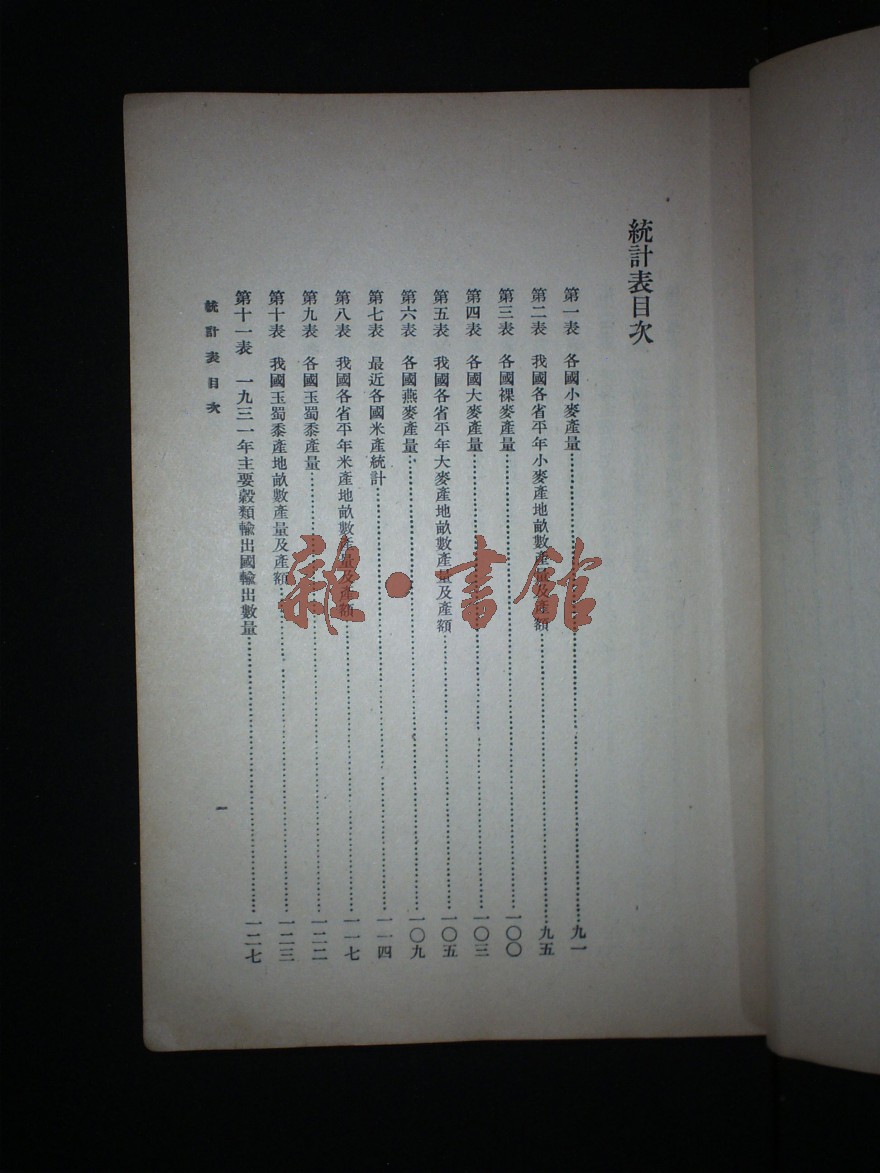 統計表目次
第一表 各國小麥產量…………九一
第二表 我國各省平年小麥產地畝數產量及產額…………九五
第三表 各國裸麥產量…………一〇〇
第四表 各國大麥產量…………一〇三
第五表 我國各省平年大麥產地畝數產量及產額…………一〇五
第六表 各國燕麥產量…………一〇九
第七表 最近各國米產統計…………一一四
第八表 我國各省平年米產地畝數產量及產額…………一一七
第九表 各國玉蜀黍產量…………一二二
第十表 我國玉蜀黍產地畝數產量及產額…………一二三
第十一表 一九三一年主要穀類輸出國輸出數量…………一二七
統計表目次
一
雜·書館